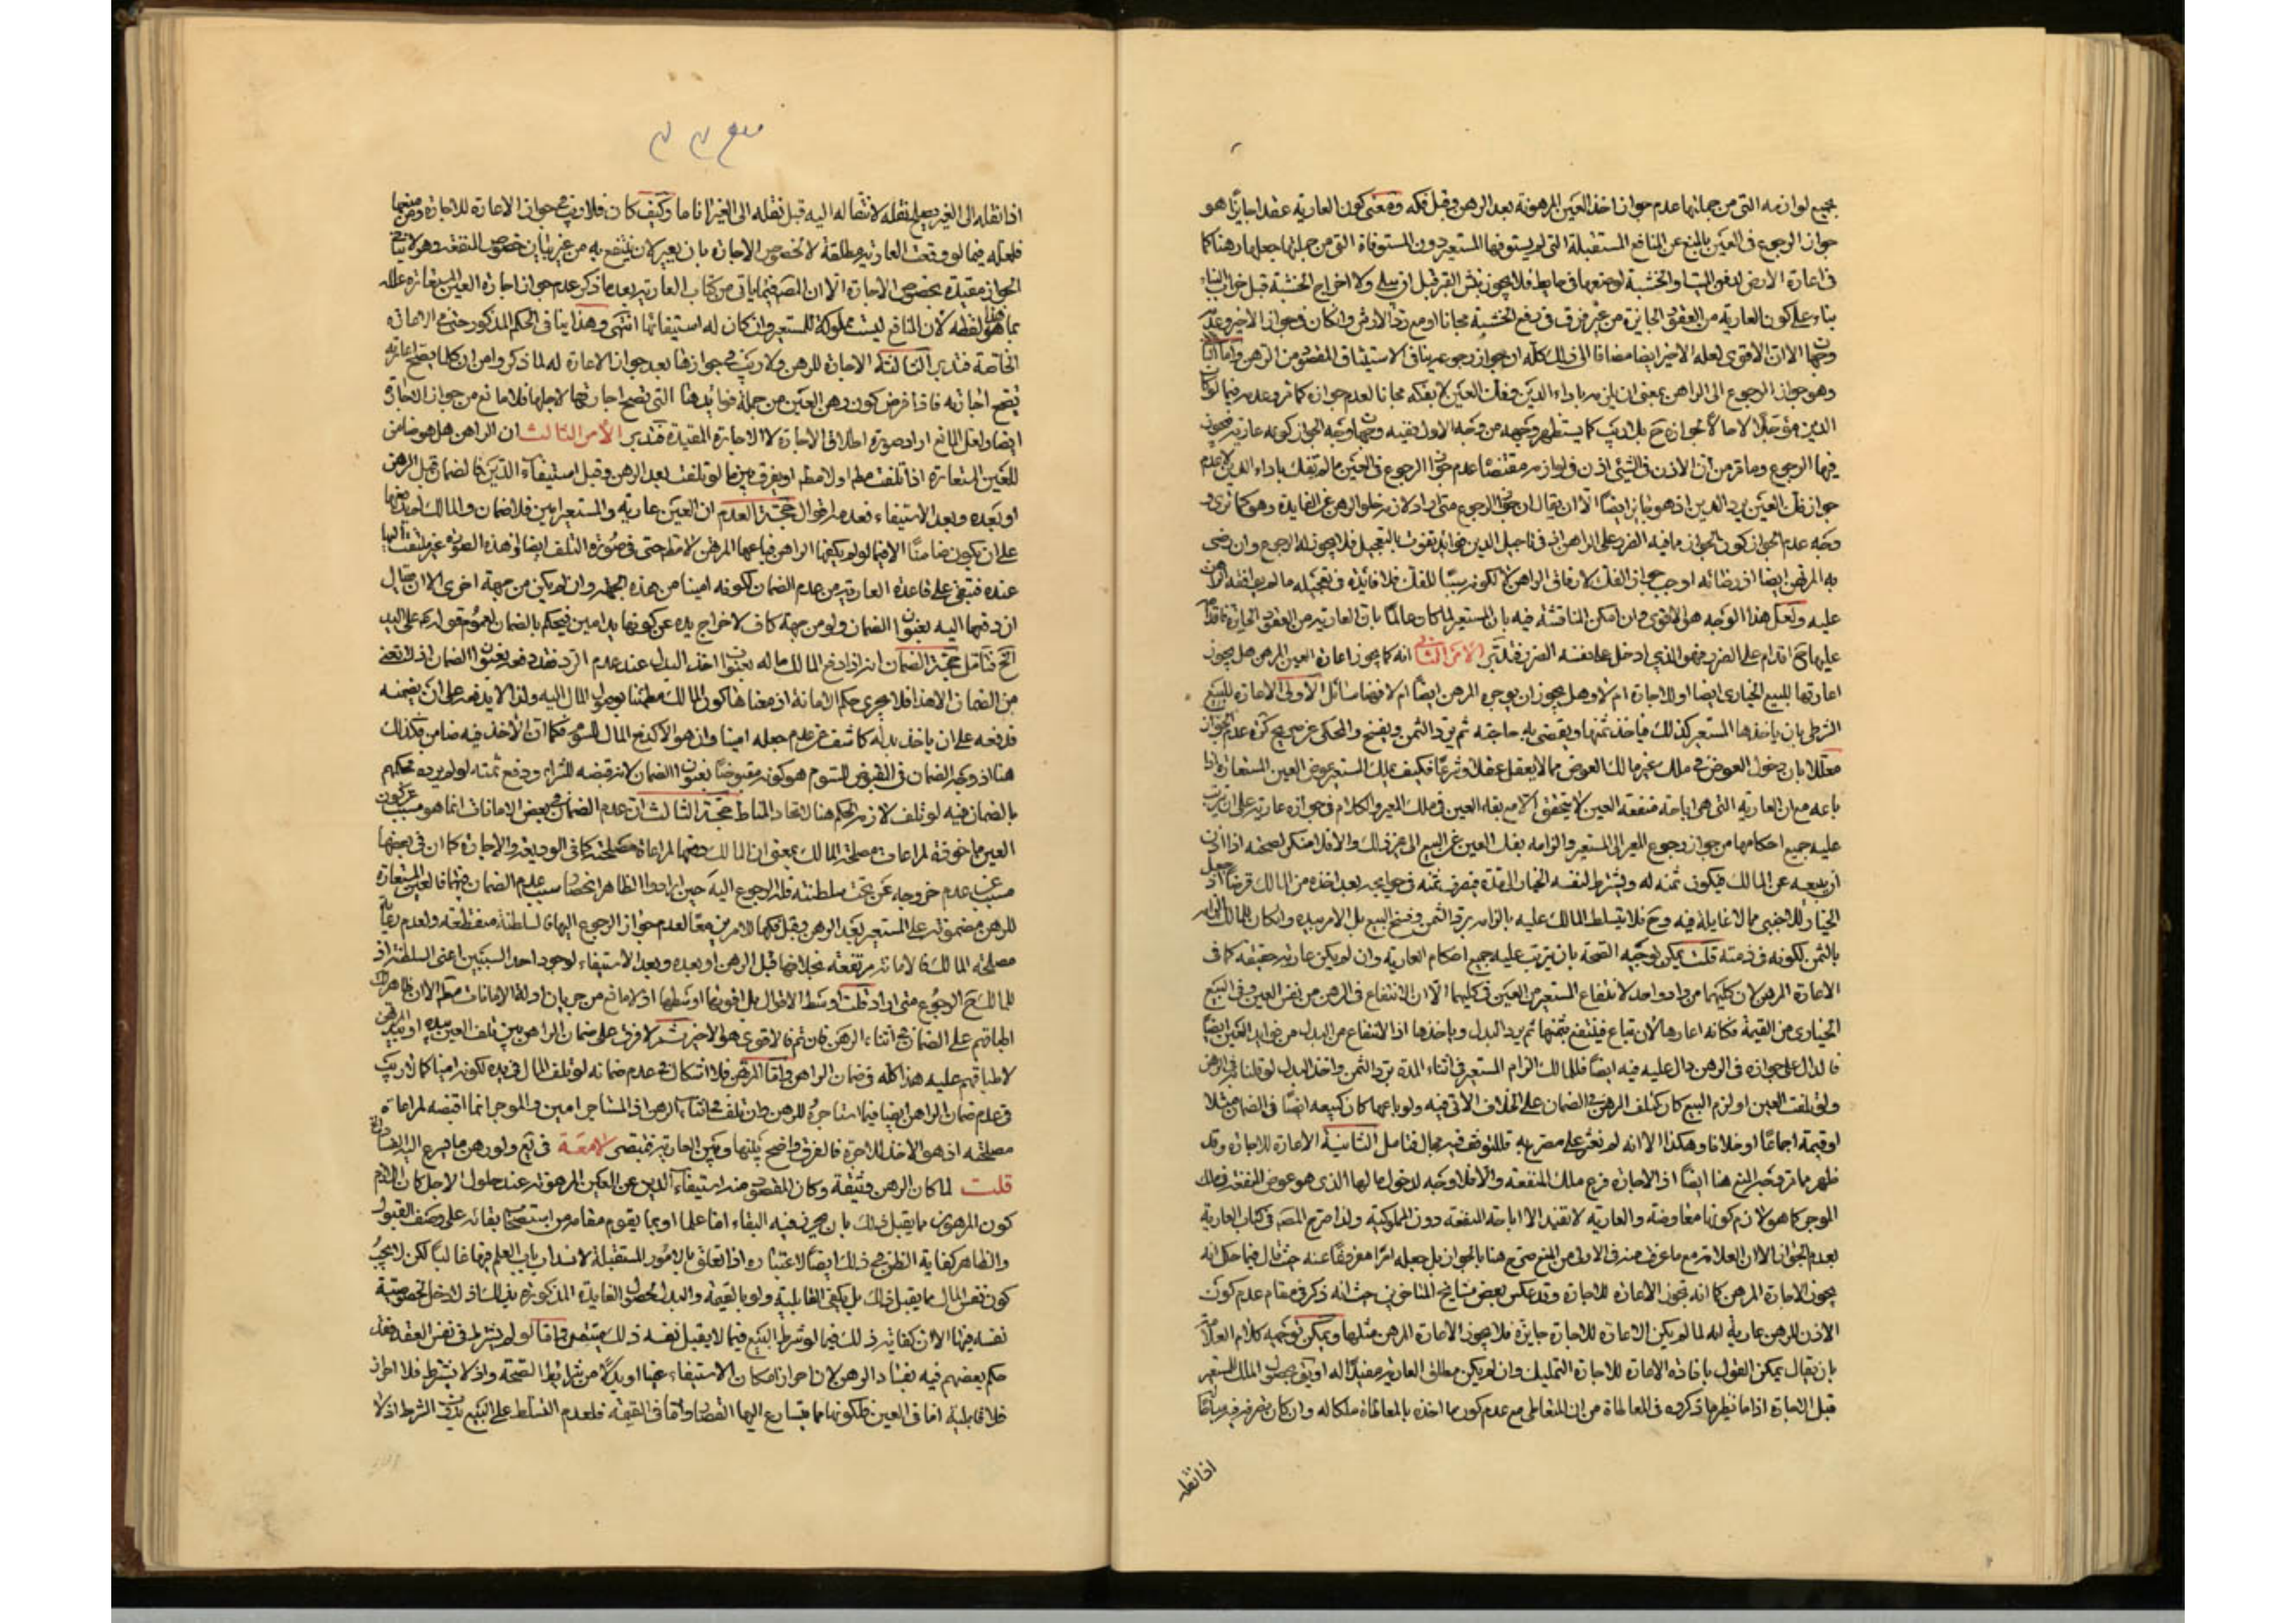 بجميع لوازمه التى من جملتها عدم جواز اخذ العين المرهونة بعد الرهن وقبل فكه ومعنى كون العارية عقدا جايزا هو
جواز الرجوع فى العين بالمنع عن المنافع المستقبلة التى لم يستوفها المستعير دون المستوفاة التى من جملتها جعلها رهنا كما
فى اعارة الارض لدفن الميت او الخشبة لوضعها فى حايط فلا يجوز نبش القبر قبل ان يبلى ولا اخراج الخشبة قبل خراب البناء
بناء على كون العارية من العقود الجايزة من غير فرق فى رفع الخشبة مجانا او مع رد الارش وان كان فى جواز الاخير وعدمه
وجهان الا ان الاقوى لعله الاخير ايضا مضافا الى ذلك كله ان جواز رجوعه ينافى الاستيثاق المقصود من الرهن واما الثانى
وهو جواز الرجوع الى الراهن بمعنى ان يلزمه باداء الدين وفك العين لا بفكه مجانا لعدم جوازه كما مر وعدمه فيما لو كان
الدين مؤجلا لا حالا لجوازه ح بلا ريب كما يستظهر وجهه من وجه الاول ففيه وجهان وجه الجواز كونه عارية فيجوز
فيها الرجوع وما مر من ان الاذن فى الشئ اذن فى لوازمه مقتضاه عدم جواز الرجوع فى العين ما لم تفك باداء الدين لا عدم
جواز فك العين برد الدين اذ هو جايز ايضا الا ان يقال ان جواز الرجوع متى اراد لازمه خلو الرهن عن الفايدة وهو كما ترى و
وجه عدم الجواز كون الجواز ما فيه الضرر على الراهن اذ فى تاجيل الدين فوائد تفوت بالتعجيل فلا يجوز له الرجوع وان رضى
به المرتهن ايضا اذ رضائه اوجب جواز الفك لا رفاق الراهن الا لكونه سببا للفك فلا فائدة فى تعجيله ما لم يوافقه الراهن
عليه ولعل هذا الوجه هو الاقوى وان امكن المناقشة فيه بان المستعير لما كان عالما بان العارية من العقود الجايزة فاقدامه
عليها ح اقدام على الضرر فهو الذى ادخل على نفسه الضرر فتدبر الامر الثانى انه كما يجوز اعارة العين للرهن هل يجوز
اعارتها للبيع الخيارى ايضا او للاجارة ام لا وهل يجوز ان يوجر للرهن ايضا ام لا فهنا مسائل الاولى الاعارة للبيع
الشرطى بان ياخذها المستعير كذلك فياخذ ثمنها ويقضى به حاجته ثم يرد الثمن ويفسخ والمحكى عن صريح كره عدم الجواز
معللا بان دخول العوض فى ملك غير مالك العوض مما لا يعقل عقلا وشرعا فكيف يملك المستعير عوض العين المستعارة اذا
باعه مع ان العارية التى هى اباحة منفعة العين لا يتحقق الا مع بقاء العين فى ملك المعير والكلام فى جوازه عارية على ان يترتب
عليه جميع احكامها من جواز رجوع المعير الى المستعير والزامه بفك العين عن البيع الى غير ذلك والا فلا منكر لصحته اذا اذن
ان يبيعه عن المالك فيكون ثمنه له ويشترط لنفسه الخيار الى مدة فيصرف ثمنه فى حوايجه بعد اخذه من المالك قرضا اذ جعل
الخيار للاجنبى مما لا غايلة فيه وح فلا يتسلط المالك عليه بالزامه برد الثمن وفسخ البيع بل الامر بيده وان كان للمالك الزامه
بالثمن لكونه فى ذمته قلت يمكن توجيه الصحة بان يترتب عليه جميع احكام العارية وان لم يكن عارية حقيقة كما فى
الاعارة للرهن لان كليهما من واد واحد لانتفاع المستعير من العين فى كليهما الا ان الانتفاع فى الرهن من نفس العين وفى البيع
الخيارى من القيمة فكانه اعارها لان تباع فينتفع بثمنها ثم يرد البدل وياخذها اذ الانتفاع من البدل من فوايد العين ايضا
فالدال على جوازه فى الرهن دال عليه فيه ايضا فللمالك الزام المستعير فى اثناء المدة برد الثمن واخذ البدل لو قلنا فى الرهن
ولو تلفت العين او لزم البيع كان كتلف الرهن فى الضمان على الخلاف الاتى فيه ولو باعها كان كبيعه ايضا فى الضمان مثلا
او قيمة اجماعا او خلافا وهكذا الا انه لم نعثر على مصرح به فللتوقف فيه مجال فتامل الثانية الاعارة للاجارة وقد
ظهر مما مر وجه المنع هنا ايضا اذ الاجارة فرع ملك المنفعة والا فلا وجه لدخول مالها الذى هو عوض المنفعة فى ملك
الموجر كما هو لازم كونها معاوضة والعارية لا تفيد الا اباحة المنفعة دون المملوكية ولذا صرح المصر فى كتاب العارية
بعدم الجواز الا ان العلامة مع ما عرفت منه فى الاولى من المنع صرح هنا بالجواز بل جعله امرا مفروغا عنه حيث قال فيما حكى انه
يجوز الاجارة للرهن كما انه يجوز الاعارة للاجارة وقد عكس بعض مشايخ المتاخرين حيث انه ذكر فى مقام عدم كون
الاذن للرهن عارية انه لما لم يكن الاعارة للاجارة جايزة فلا يجوز الاعارة للرهن مثلها ويمكن توجيه كلام العلامة
بان يقال يمكن القول بافادة الاعارة للاجارة التمليك وان لم يكن مطلق العارية مفيدا له او يق بحصول الملك للمستعير
قبل الاجارة اناما نظير ما ذكروه فى المعاطاة من ان للمتعاطى مع عدم كون ما اخذه بالمعاطاة ملكا له وان كان يتصرف فيه
اذا نقله
اذا نقله الى الغير بيع نقله لانتقاله اليه قبل نقله الى الغير اناما وكيف كان فلا ريب فى جواز الاعارة للاجارة ومن منعها
فلعله فيما لو وقعت العارية مطلقة لا لخصوص الاجارة بان يعير لان ينتفع به من غير بيان خصوص المنفعة وهو لا ينافى
الجواز مقيدة بخصوص الاجارة الا ان المصر فيما ياتى من كتاب العارية بعد ما ذكر عدم جواز اجارة العين المستعارة علله
بما هذا لفظه لان المنافع ليست مملوكة للمستعير وان كان له استيفائها انتهى وهذا ينافى الحكم المذكور حتى مع الاعارة
الخاصة فتدبر الثالثة الاجارة للرهن ولا ريب فى جوازها بعد جواز الاعارة له لما ذكر وا من ان كلما يصح اعارته
يصح اجارته فاذا فرض كون رهن العين من جملة فوائدها التى يصح اجارتها لاجلها فلا مانع من جواز الاجارة
ايضا ولعل المانع اراد صورة اطلاق الاجارة لا الاجارة المقيدة فتدبر الامر الثالث ان الراهن هل هو ضامن
للعين المستعارة اذا تلفت مطم او لا مطم او يفرق بين ما لو تلفت بعد الرهن وقبل استيفاء الدين فالضمان وقبل الرهن
او بعده وبعد الاستيفاء فعدمه اقوال حجة العدم ان العين عارية والمستعير امين فلا ضمان والمالك لم يدفعها
على ان يكون ضامنا الا فيما لو لم يفكها الراهن فباعها المرتهن لا مطم حتى فى صورة التلف ايضا ففى هذه الصورة غير ملتفت اليها
عنده فتبقى على قاعدة العارية من عدم الضمان لكونه امينا من هذه الجهة وان لم يكن من جهة اخرى الا ان يقال
ان دفعها اليه بعنوان الضمان ولو من جهة كاف لاخراج يده عن كونها يد امين فيحكم بالضمان لعموم قوله ع على اليد
الخ فتامل حجة الضمان انه اذا دفع المالك ماله بعنوان اخذ البدل عند عدم الرد فقد دفعه بعنوان الضمان اذ لا نعنى
من الضمان الا هذا فلا يجرى حكم الامانة اذ معناها كون المالك مطمئنا بوصول المال اليه ولذا لا يدفعه على ان يضمنه
فدفعه على ان ياخذ بدله كاشف عن عدم جعله امينا وان هو الا كدفع المال للسوم فكما ان الاخذ فيه ضامن فكذلك
هنا اذ وجه الضمان فى المقبوض للسوم هو كونه مقبوضا بعنوان الضمان لانه قبضه للشراء ودفع ثمنه لو لم يرده فحكمهم
بالضمان فيه لو تلف لازمه الحكم هنا لاتحاد المناط حجة الثالث ان عدم الضمان فى بعض الامانات انما هو مسبب عن كون
العين ماخوذة لمراعات مصلحة المالك بمعنى ان المالك دفعها لمراعاة مصلحته كما فى الوديعة والاجارة كما ان فى بعضها
مسبب عن عدم خروجه عن تحت سلطنته فله الرجوع اليه حين ارادوا الظاهر انحصار سبب عدم الضمان فيهما فالعين المستعارة
للرهن مضمونة على المستعير بعد الرهن وقبل فكها للامرين معا لعدم جواز الرجوع اليها فالسلطنة منقطعة ولعدم رعاية
مصلحة المالك فالامانة مرتفعة بخلافها قبل الرهن او بعده وبعد الاستيفاء لوجود احد السببين اعنى السلطنة اذ
للمالك ح الرجوع متى اراد قلت اوسط الاقوال بل اقويها اوسطها اذ لا مانع من جريان ادلة الامانات مطم الا ان ظاهرهم
اطباقهم على الضمان فى اثناء الرهن فان تم فالاقوى هو الاخير ثم لا فرق على ضمان الراهن بين تلف العين بيده او بيد المرتهن
لاطباقهم عليه هذا كله فى ضمان الراهن واما المرتهن فلا اشكال فى عدم ضمانه لو تلف المال فى يده لكونه امينا كما لا ريب
فى عدم ضمان الراهن ايضا فيما استاجره للرهن وان تلف فى اثناء الرهن اذ المستاجر امين والموجر انما اقبضه لمراعاة
مصلحته اذ هو الاخذ للاجرة فالفرق واضح بينها وبين العارية بمقتضى الامعة فى يع ولو رهن ما يسرع اليه الفساد
قلت لما كان الرهن وثيقة وكان المقصود منه استيفاء الدين عن العين المرهونة عند حلول الاجل كان اللازم
كون المرهون مما يقبل ذلك بان يحرز فيه البقاء اما علما او بما يقوم مقامه من استصحاب بقائه على وصف القبول
والظاهر كفاية الظن فى ذلك ايضا لاعتباره اذا تعلق بالامور المستقبلة لانسداد باب العلم فيها غالبا لكن لا يجب
كون نفس المال مما يقبل ذلك بل يكفى القابلية ولو بالقيمة والبدل لحصول الفايدة المذكورة بذلك اذ لا دخل لخصوصية
نفسه فيها الا ان كفاية ذلك فيما لو شرط البيع فيما لا يقبل نفسه ذلك متيقن واما لو لم يشترط فى نفس العقد فقد
حكم بعضهم فيه بفساد الرهن لان احراز امكان الاستيفاء عينا او بدلا من شرائط الصحة واذ لا يشترط فلا احراز
فلا قابلية اما فى العين فلكونها مما يتسارع اليها الفساد واما فى القيمة فلعدم التسلط على البيع بدون الشرط اذ لا